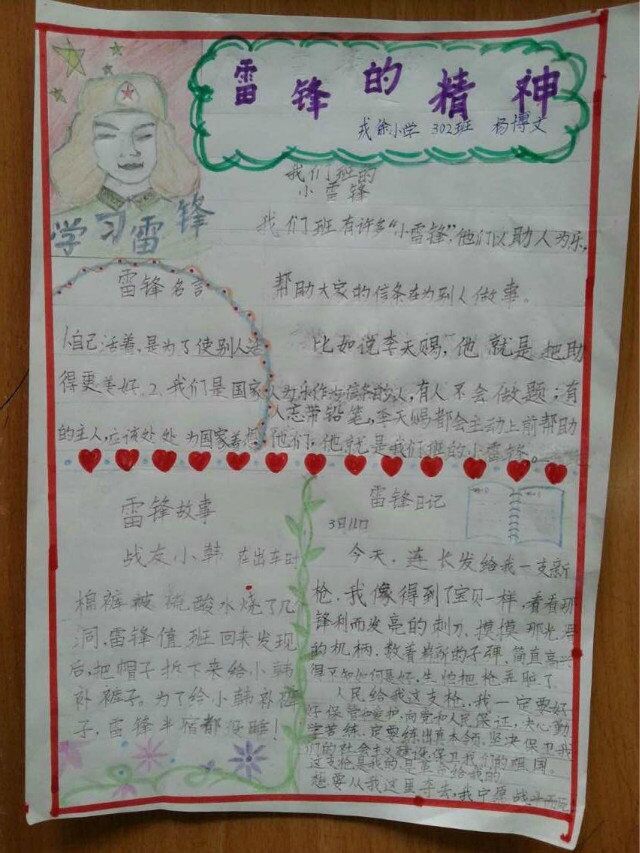 雷锋的精神
戎徐小学 302班 杨博文
学习雷锋
我们班的
小雷锋
我们班有许多“小雷锋”,他们以助人为乐,
帮助大家的信条在为别人做事。
比如说李天赐,他就是把助
人为乐作为信条的人,有人不会做题;有
人忘带铅笔,李天赐都会主动上前帮助
他们,他就是我们班的小雷锋。
雷锋名言
1、自己活着,是为了使别人活
得更美好。2、我们是国家
的主人,应该处处为国家着想
雷锋故事
战友小韩在出车时
棉裤被硫酸水烧了几
洞,雷锋值班回来发现
后,把帽子拆下来给小韩
补裤子。为了给小韩补裤
子,雷锋半宿都没睡!
雷锋日记
3月12日
今天,连长发给我一支新
枪,我像得到了宝贝一样,看看那
锋利而发亮的刺刀,摸摸那光
的机柄,数着崭新的子弹,简直高兴
得不知如何是好,生怕把枪弄脏了
人民给我这支枪,我一定要好
好保管和爱护,向党和人民保证,决心勤
学苦练,一定要练出真本领,坚决保卫我
们的社会主义建设,保卫我们的祖国。
这支枪是我的是党给我的
想要从我这里夺去,我宁愿战斗而死